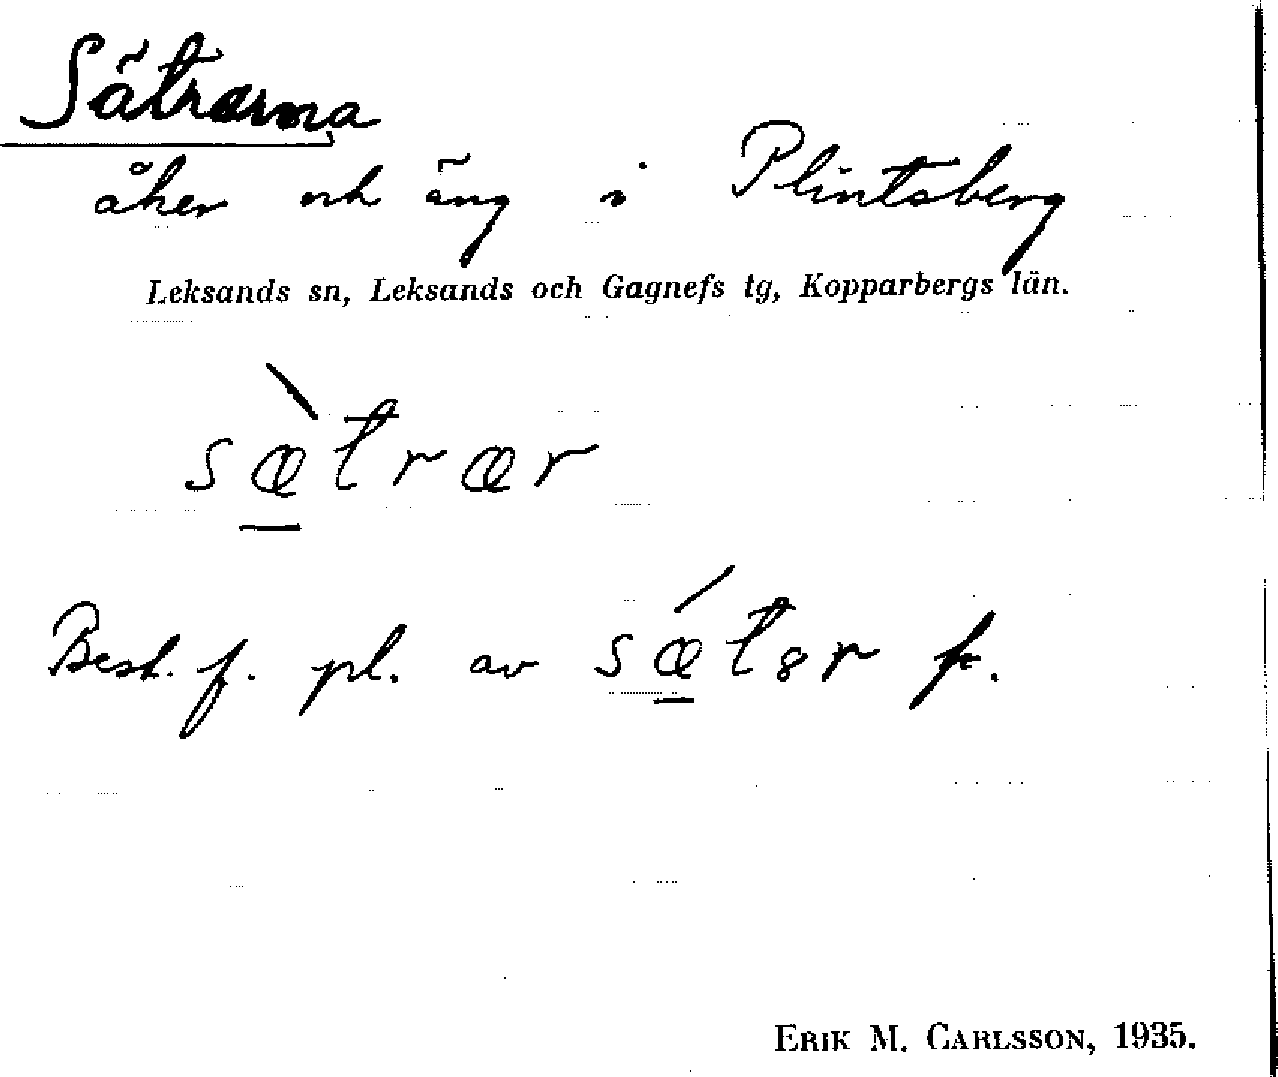 Sätrarna
åker och äng i Plintsberg
Leksands sn, Leksands och Gagnefs tg, Kopparbergs län.
sæ̀trær
Best. f. pl. av sǽtər f.
ERIK M. CARLSSON, 1935.